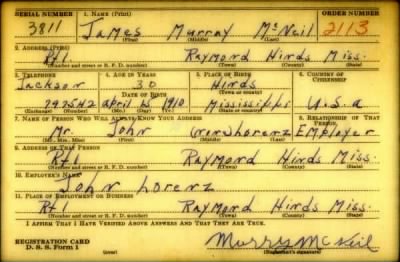 SERIAL NUMBER 1. NAME (Print) ORDER NUMBER
3811 James Murray McNeil 2113
(First) (Middle) (Last)
2. ADDRESS (Print)
Rt 1 Raymond Hinds Miss.
(Number and street or R. F. D. number) (Town) (County) (State)
3. TELEPHONE 4. AGE IN YEARS 5. PLACE OF BIRTH 6. COUNTRY OF CITIZENSHIP
Jackson 30 Hinds
DATE OF BIRTH (Town or county)
292542 april 15 1910 Mississippi U.S.a
(Exchange) (Number) (Mo.) (Day) (Yr.) (State or country)
7. NAME OF PERSON WHO WILL ALWAYS KNOW YOUR ADDRESS 8. RELATIONSHIP OF THAT PERSON
Mr. John Lorenz Employer
(Mr., Mrs., Miss) (First) (Middle) (Last)
9. ADDRESS OF THAT PERSON
Rt 1 Raymond Hinds Miss.
(Number and street or R. F. D. number) (Town) (County) (State)
10. EMPLOYER'S NAME
John Lorenz
11. PLACE OF EMPLOYMENT OR BUSINESS
Rt 1 Raymond Hinds Miss.
(Number and street or R. F. D. number) (Town) (County) (State)
I AFFIRM THAT I HAVE VERIFIED ABOVE ANSWERS AND THAT THEY ARE TRUE.
REGISTRATION CARD
D. S. S. Form 1 Murry McNeil
(Registrant's signature)